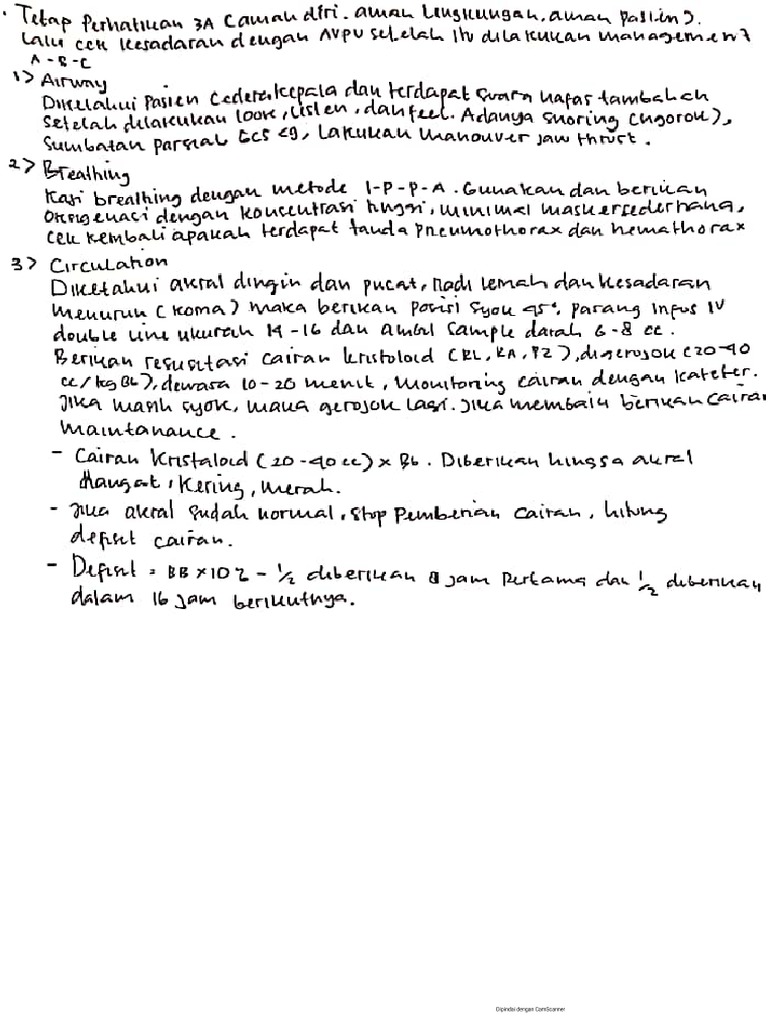 · Tetap Perhatikan 3A (aman diri, aman lingkungan, aman pasien).
Lalu cek kesadaran dengan AVPU setelah itu dilakukan management
A-B-C
1) Airway
Diketahui pasien cedera kepala dan terdapat suara nafas tambahan
setelah dilakukan look, listen, dan feel. Adanya snoring (ngorok),
Sumbatan parsial GCS <9, Lakukan manouver jaw thrust.
2) Breathing
Kasi breathing dengan metode I-P-P-A. Gunakan dan berikan
Oksigenasi dengan konsentrasi tinggi, minimal masker sederhana,
cek kembali apakah terdapat tanda pneumothorax dan hemathorax
3) Circulation
Diketahui akral dingin dan pucat, nadi lemah dan kesadaran
menurun (koma) maka berikan posisi syok 45°, pasang infus IV
double line ukuran 14-16 dan ambil sample darah 6-8 cc.
Berikan resusitasi cairan kristoloid (RL, RA, PZ), digerojok (20-40
cc/kg BB), dewasa 10-20 menit, monitoring cairan dengan kateter.
Jika masih syok, maka gerojok lagi. Jika membaik berikan cairan
maintanance.
- Cairan kristaloid (20-40 cc) x BB. Diberikan hingga akral
Hangat, Kering, Merah.
- Jika akral sudah normal, Stop pemberian cairan, hitung
defisit cairan.
- Defisit = BB x 10% - 1/2 diberikan 8 jam Pertama dan 1/2 diberikan
dalam 16 jam berikutnya.
Dipindai dengan CamScanner